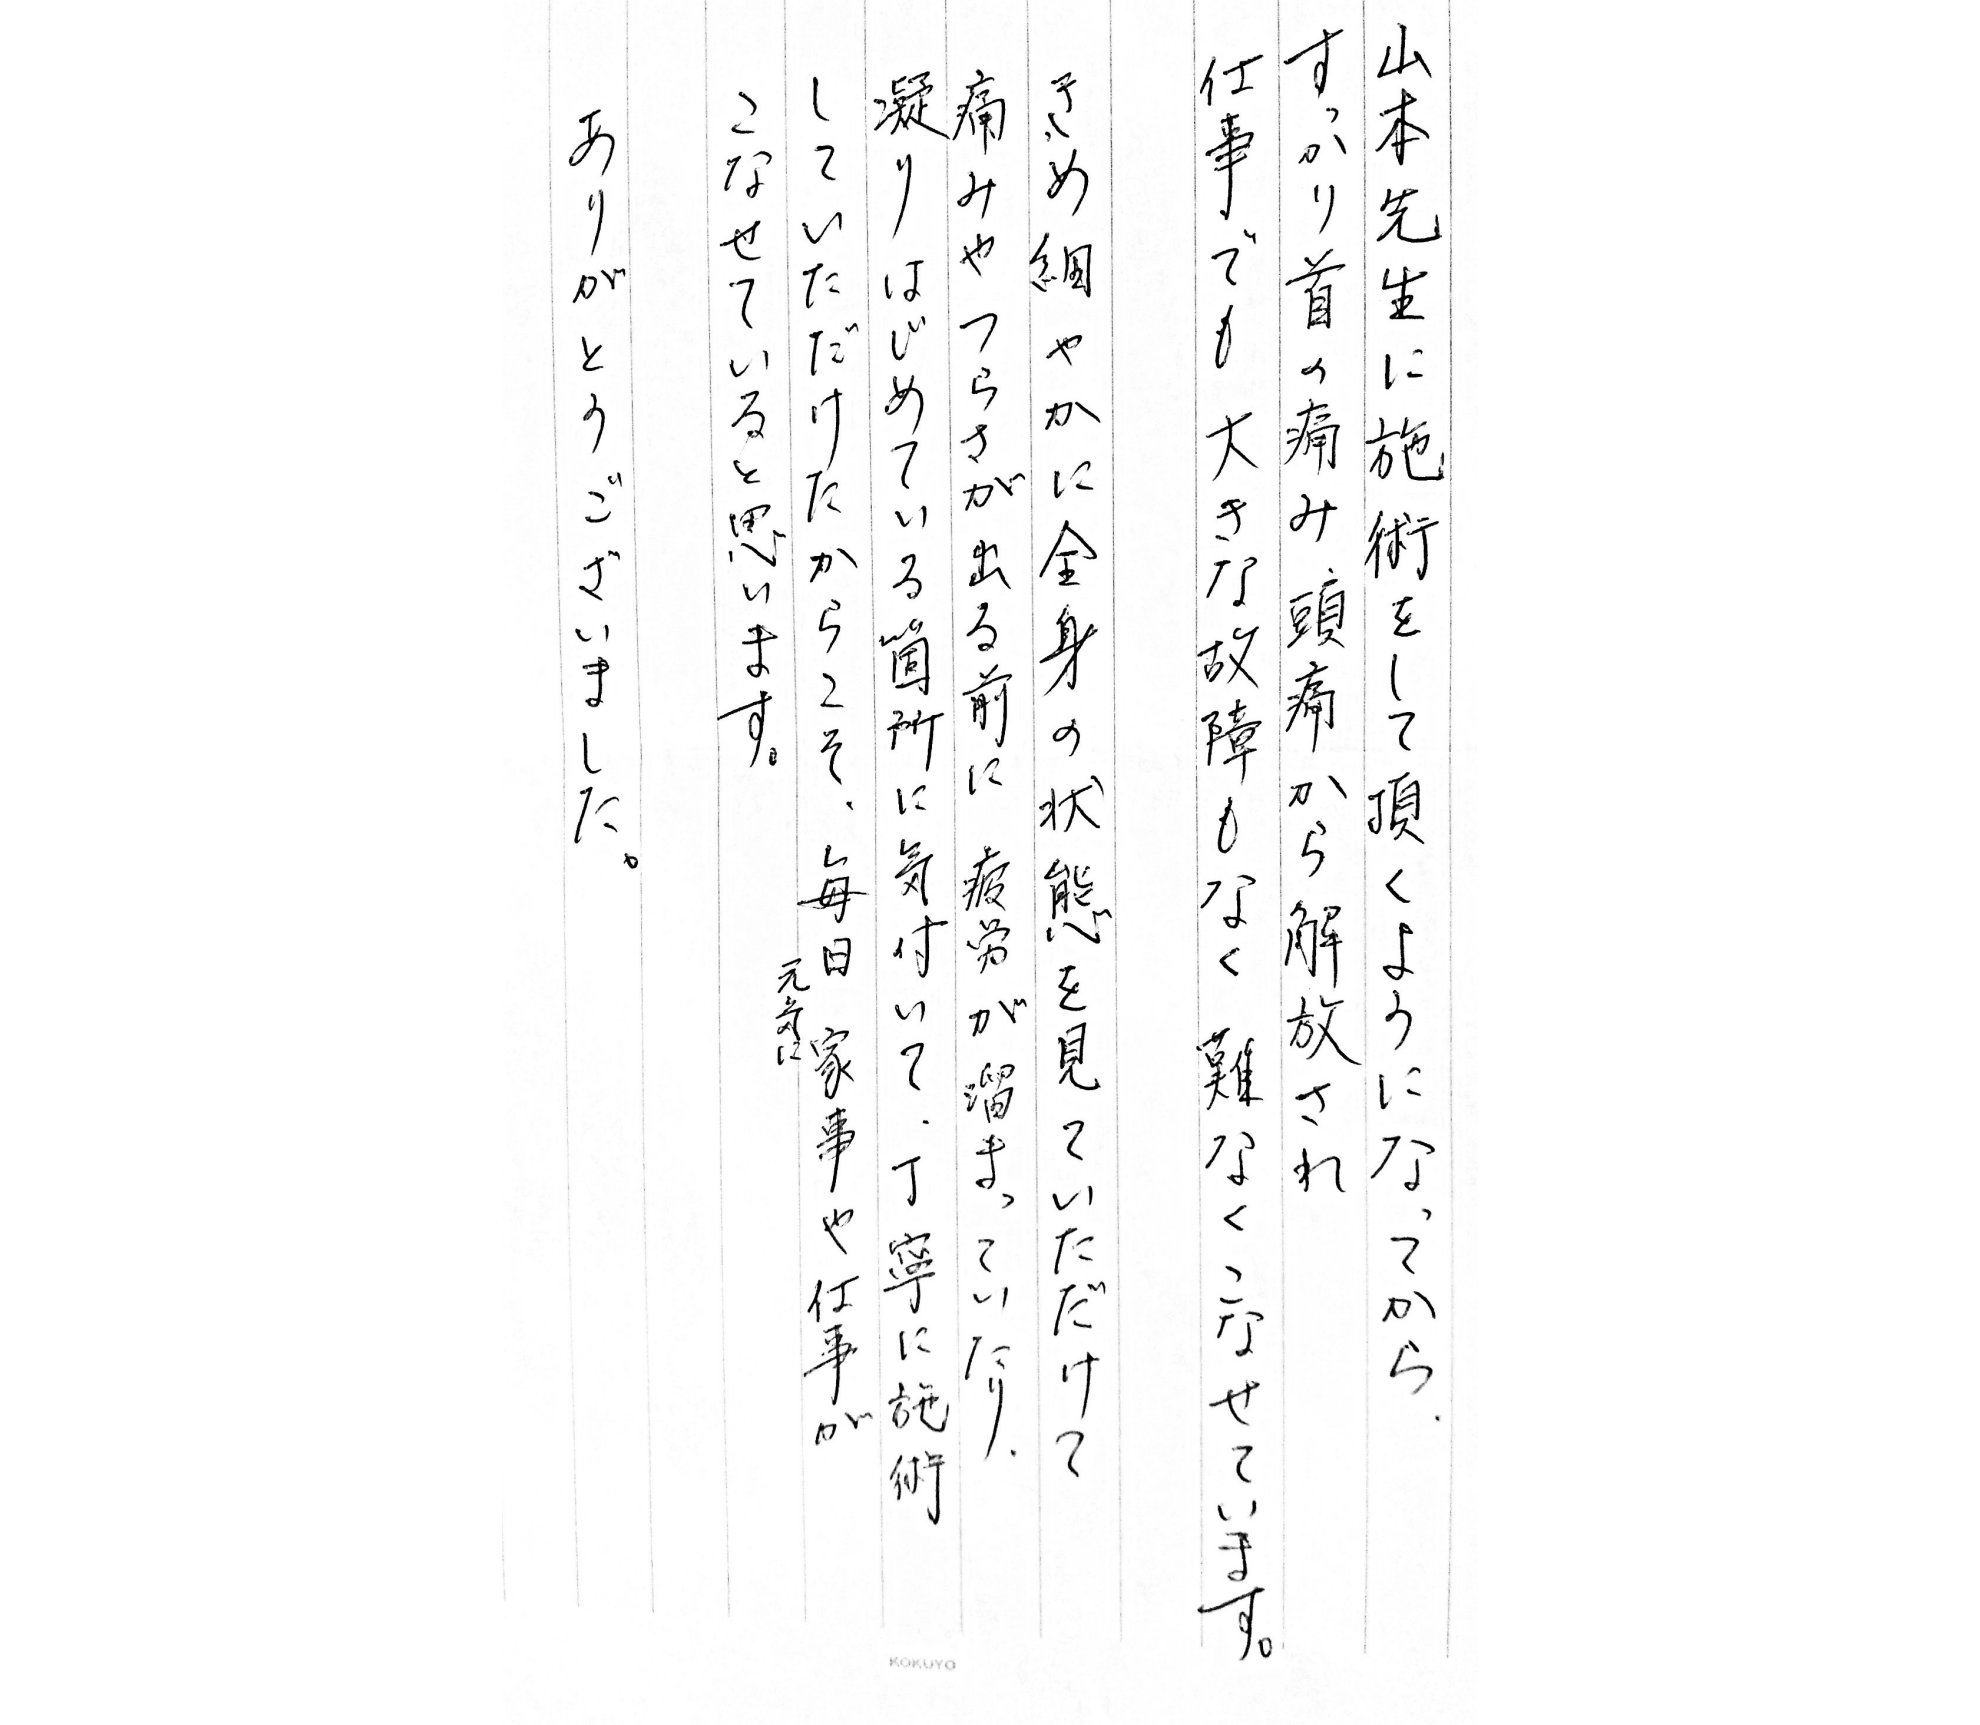 山本先生に施術をして頂くようになってから、
すっかり首の痛み、頭痛から解放され
仕事でも大きな故障もなく難なくこなせています。
きめ細やかに全身の状態を見ていただけて
痛みやつらさが出る前に疲労が溜まっていたり、
凝りはじめている箇所に気付いて、丁寧に施術
していただけたからこそ、毎日家事や仕事が
元気に
こなせていると思います。
ありがとうございました。
KOKUYO